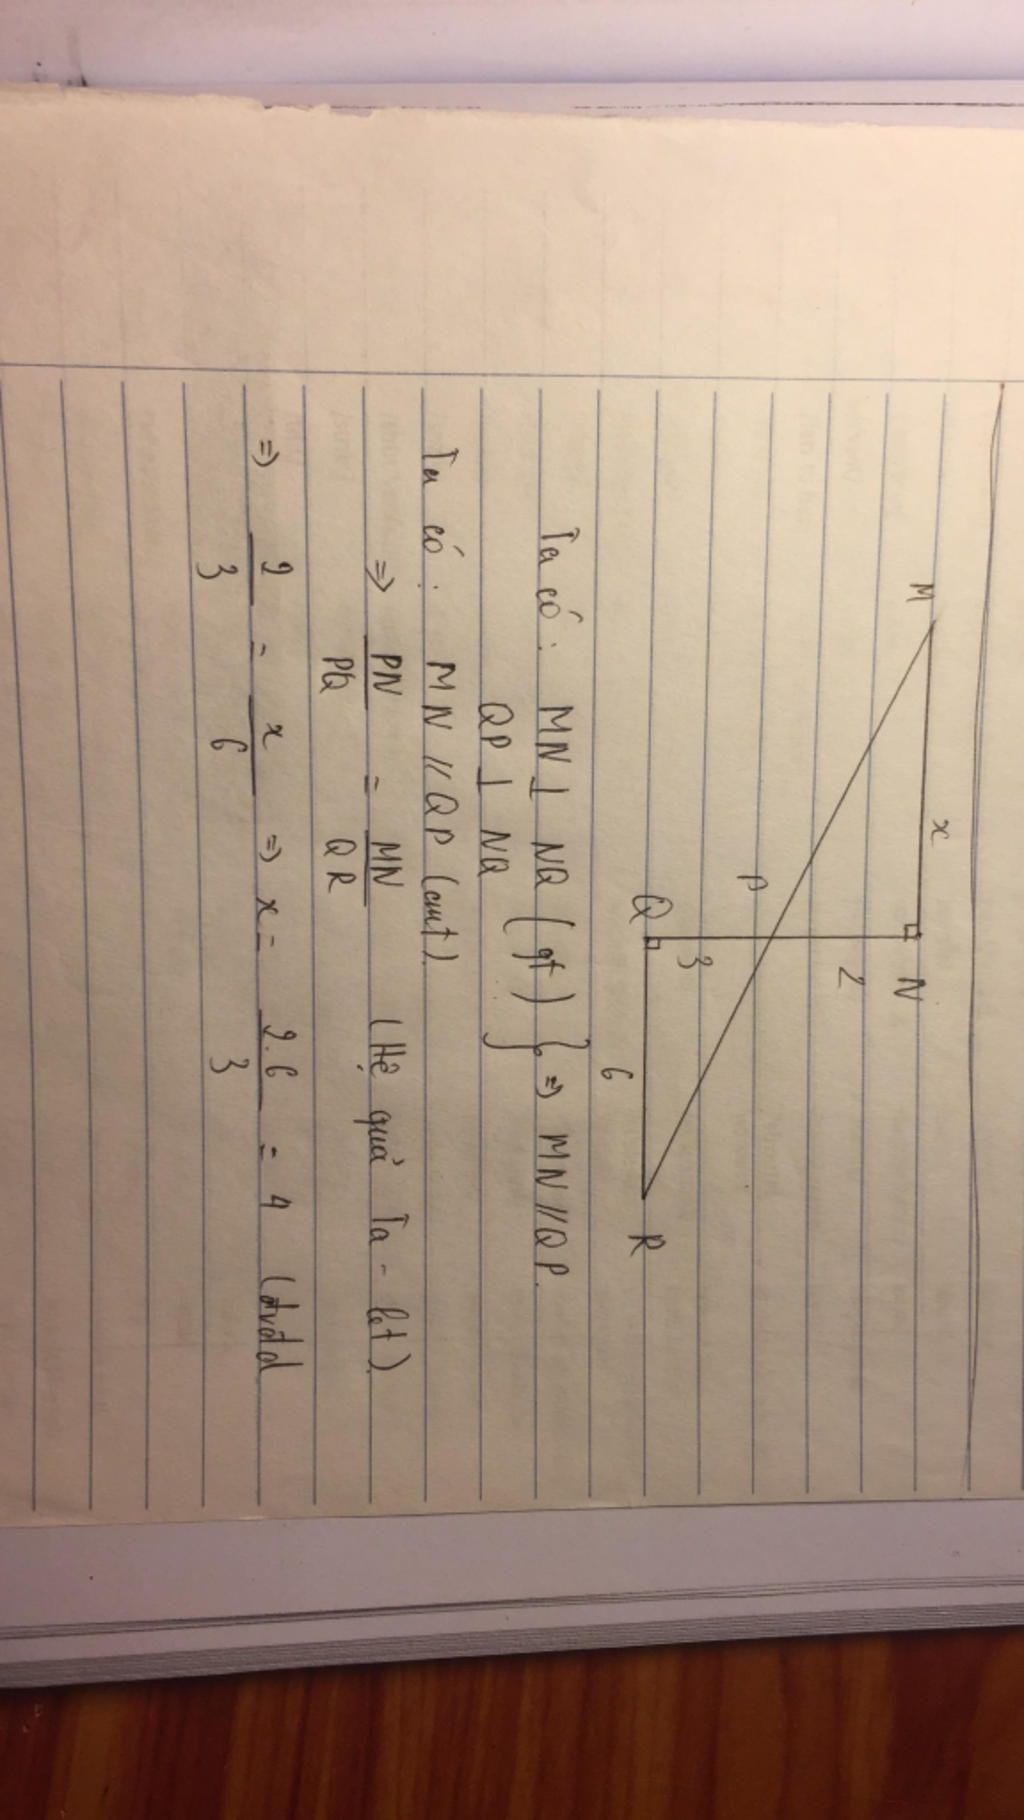 M x N
2
P
3
Q 6 R
Ta có: MN ⊥ NQ (gt) } => MN // QP.
QP ⊥ NQ
Ta có: MN // QP (cmt)
=> PN/PQ = MN/QR (Hệ quả Ta-let)
=> 2/3 = x/6 => x = 2.6/3 = 4 (đvđd